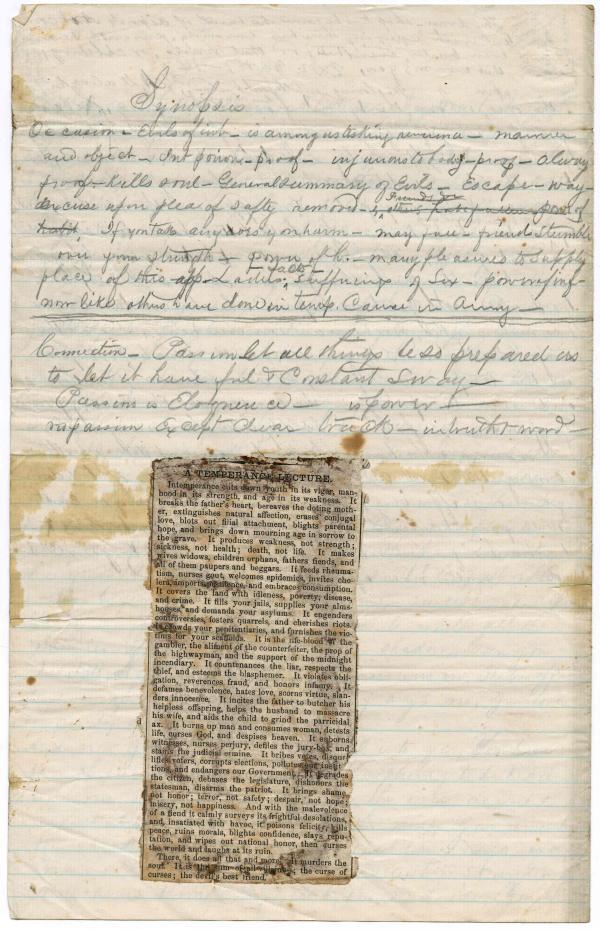 Synopsis
Occasion – Evils of int – is among us – manner
and object – Int poison – proof – injurious to body – proof – Alway
proof – Kills soul – General summary of Evils – Escape – way –
excuse upon plea of safty removed – Friends or others proof of
habit. If you take any loss yon harm – may fall – friend stumble
over your strength – power of h. – many pleasures to supply
place of this – app – Ladies, also – sufferings of Sex – powerful inf –
now like others have done in temp. Cause in Army –
Connection – Passion let all things be so prepared as
to let it have full & Constant Sway –
Passion is Eloquence – is power –
no passion Except Clear truth – in truth & word –
A TEMPERANCE LECTURE.
Intemperance cuts down youth in its vigor, man-
hood in its strength, and age in its weakness. It
breaks the father's heart, bereaves the doting moth-
er, extinguishes natural affection, erases conjugal
love, blots out filial attachment, blights parental
hope, and brings down mourning age in sorrow to
the grave. It produces weakness, not strength;
sickness, not health; death, not life. It makes
wives widows, children orphans, fathers fiends, and
all of them paupers and beggars. It feeds rheuma-
tism, nurses gout, welcomes epidemics, invites cho-
lera, imports pestilence, and embraces consumption.
It covers the land with idleness, poverty, disease,
and crime. It fills your jails, supplies your alms-
houses, and demands your asylums. It engenders
controversies, fosters quarrels, and cherishes riots.
It crowds your penitentiaries, and furnishes the vic-
tims for your scaffolds. It is the life-blood of the
gambler, the aliment of the counterfeiter, the prop of
the highwayman, and the support of the midnight
incendiary. It countenances the liar, respects the
thief, and esteems the blasphemer. It violates obli-
gation, reverences fraud, and honors infamy. It
defames benevolence, hates love, scorns virtue, slan-
ders innocence. It incites the father to butcher his
helpless offspring, helps the husband to massacre
his wife, and aids the child to grind the parricidal
ax. It burns up man and consumes woman, detests
life, curses God, and despises heaven. It suborns
witnesses, nurses perjury, defiles the jury-box, and
stains the judicial ermine. It bribes votes, disqua-
lifies voters, corrupts elections, pollutes our insti-
tions, and endangers our Government. It degrades
the citizen, debases the legislature, dishonors the
statesman, disarms the patriot. It brings shame,
not honor; terror, not safety; despair, not hope;
misery, not happiness. And with the malevolence
of a fiend it calmly surveys its frightful desolations,
and, insatiated with havoc, it poisons felicity, kills
peace, ruins morals, blights confidence, slays repu-
tation, and wipes out national honor, then curses
the world and laughs at its ruin.
There, it does all that and more. It murders the
soul. It is the sum of all villainies; the curse of
curses; the devil's best friend.